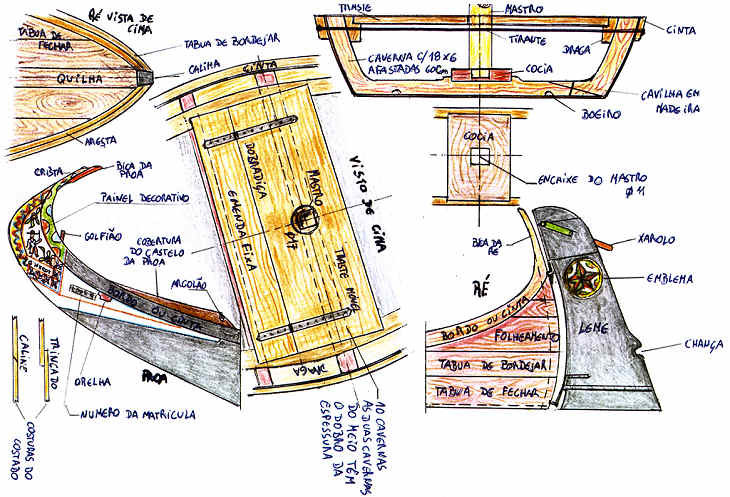 RÉ VISTA DE
CIMA
TABUA DE
FECHAR
QUILHA
ARESTA
TABUA DE BORDEJAR
CALIMA
CINTA
TRASTE
MASTRO
TIRANTE
DRAGA
CINTA
CAVERNA C/18 X 6
AFASTADAS 60Cm
COCIA
CAVILHA EM
MADEIRA
BOEIRO
COCIA
ENCAIXE DO MASTRO
Ø 11
CRISTA
BICA DA
PROA
PAINEL DECORATIVO
GOLFIÃO
COBERTURA
DO CASTELO
DA PROA
ARGOLÃO
BORDO OU CINTA
ORELHA
PROA
NUMERO DA MATRÍCULA
TRINCADO
CALIME
COSTURAS DO
COSTADO
DOBRADIÇA
EMENDA FIXA
MASTRO
Ø17
TRASTE MOVEL
VISTO DE CIMA
DRAGA
10 CAVERNAS
AS DUAS CAVERNAS
DO MEIO TÊM
O DOBRO DA
ESPESSURA
BICA DA
RÉ
RÉ
XAROLO
EMBLEMA
BORDO OU CINTA
FOLHEAMENTO
LEME
CHANÇA
TABUA DE BORDEJAR
TABUA DE FECHAR